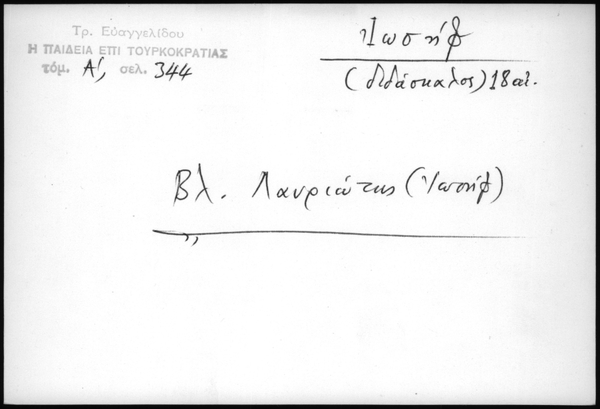 Τρ. Εὐαγγελίδου
Η ΠΑΙΔΕΙΑ ΕΠΙ ΤΟΥΡΚΟΚΡΑΤΙΑΣ
τόμ. Α', σελ. 344
Ἰωσήφ
(διδάσκαλος) 18 αἰ.
Βλ. Λαυριώτης (Ἰωσήφ)